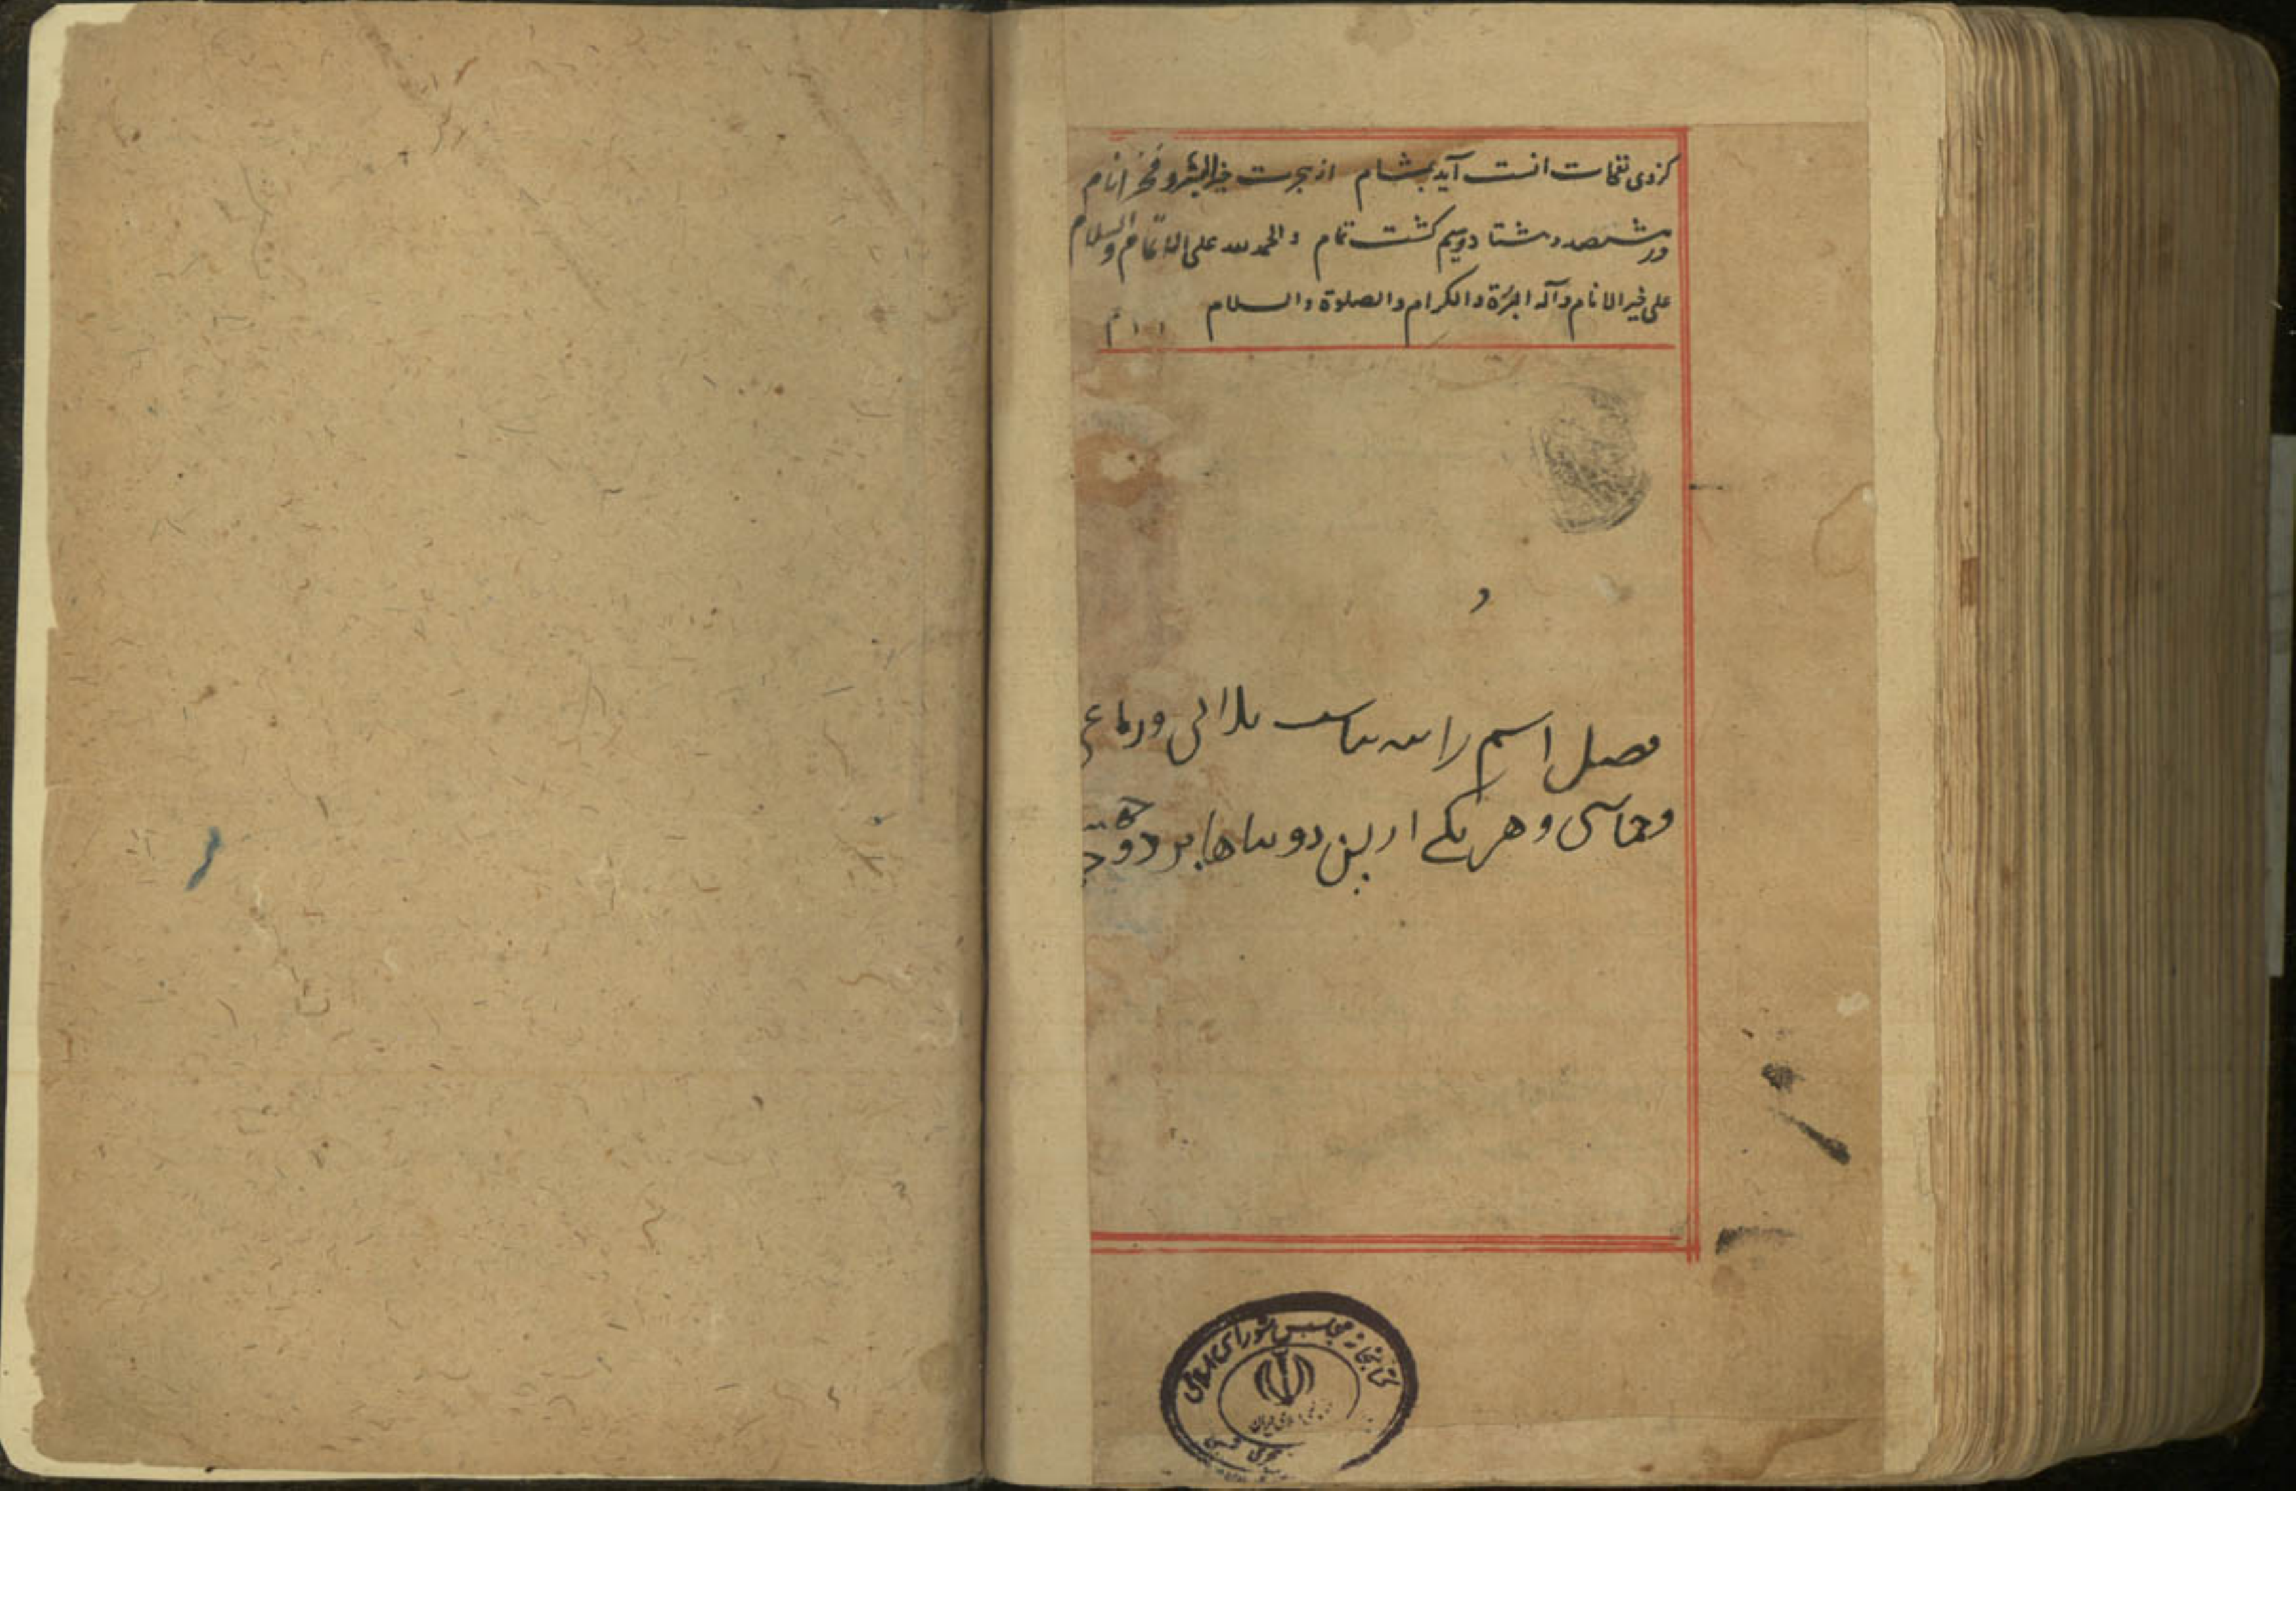 کزوی نفحات انست آید بمشام از هجرت خیر البشر و فخر انام
در هشتصد و هشتاد و سیم گشت تمام والحمد لله علی الاتمام والسلام
علی خیر الانام وآله البررة والکرام والصلوة والسلام
و
فصل اسم را سه بناست ثلاثی ورباعی
وخماسی و هر یکی ازین دو بناها بر دو
کتابخانه مجلس شورای اسلامی